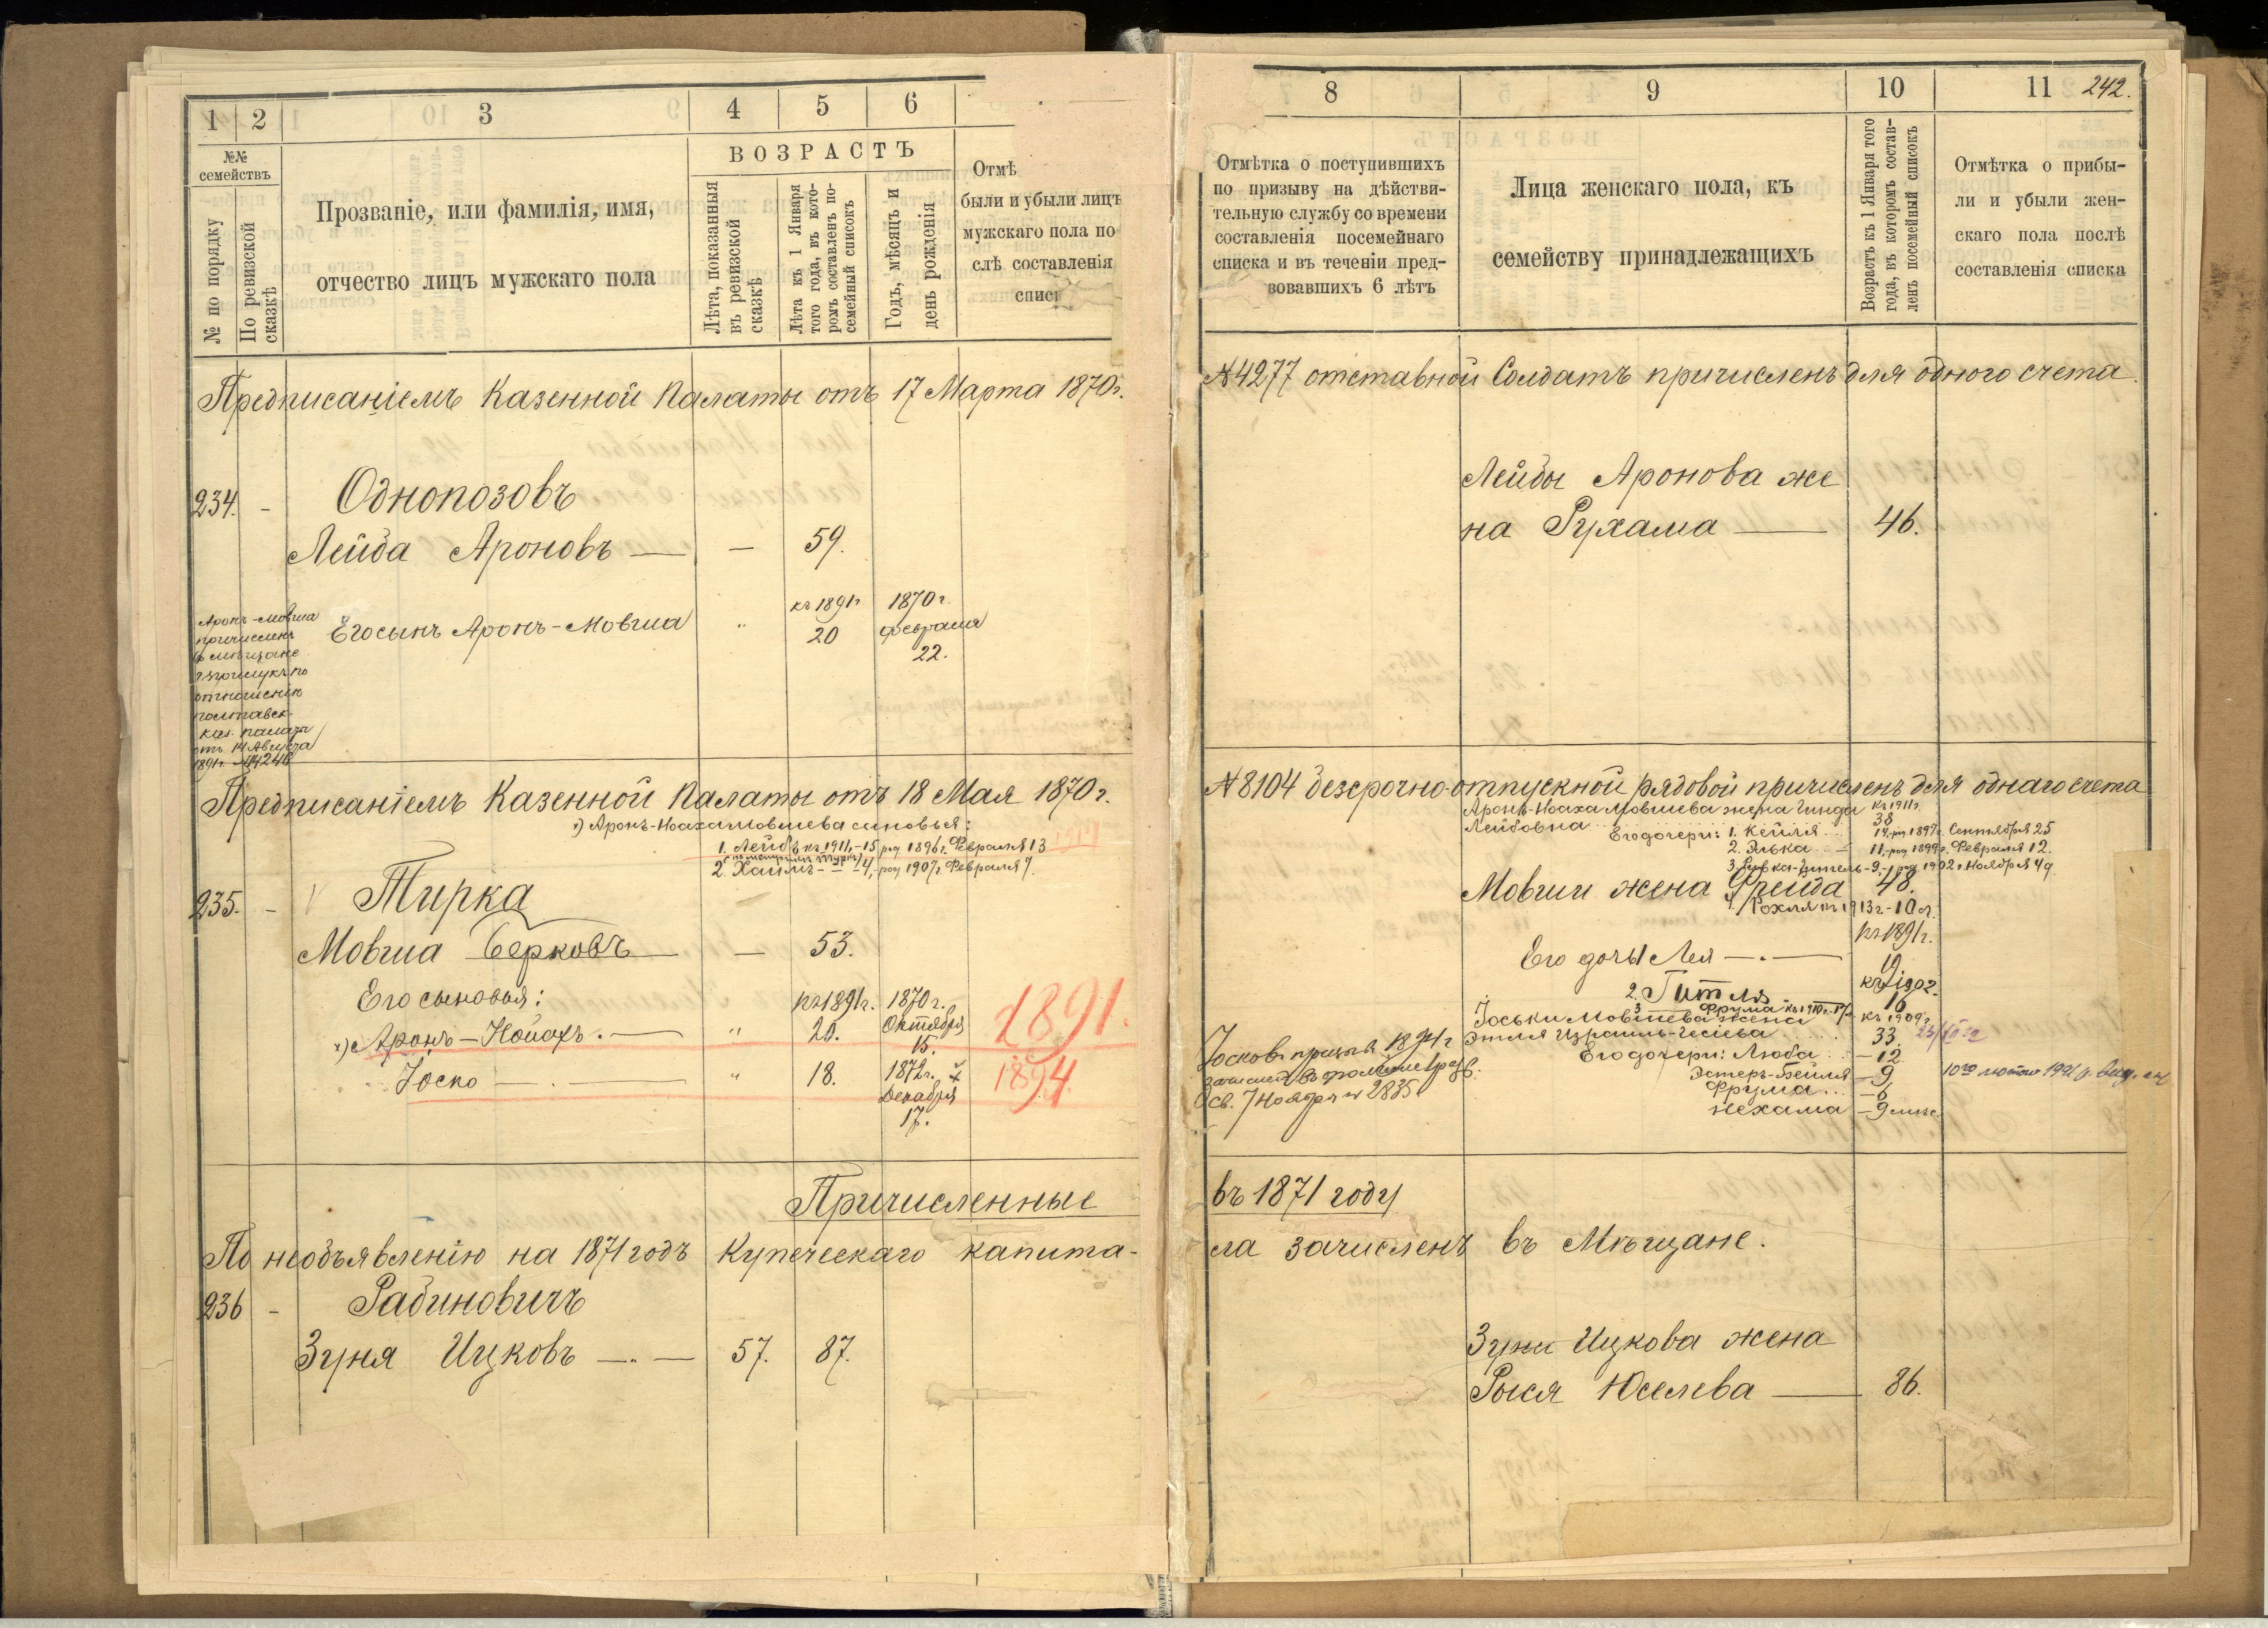 1 2 3 4 5 6
№№ семействъ
№ по порядку
По ревизской сказкѣ
Прозваніе, или фамилія, имя,
отчество лицъ мужскаго пола
ВОЗРАСТЪ
Лѣта, показанныя
въ ревизской
сказкѣ
Лѣта къ 1 Января
того года, въ кото-
ромъ составленъ по-
семейный списокъ
Годъ, мѣсяцъ и
день рожденія
Отмѣ
были и убыли лицъ
мужскаго пола по
слѣ составленія
спис
Предписаніемъ Казенной Палаты отъ 17 Марта 1870г.
234. - Однопозовъ
Лейба Ароновъ — — 59.
къ 1891г 1870г.
Его сынъ Аронъ-Мовша " 20 февраля
22.
Аронъ-Мовша
причисленъ
въ мѣщане
отношенію
полтавск.
каз. палаты
отъ 14 Августа
1891г. №4246
Предписаніемъ Казенной Палаты отъ 18 Мая 1870г.
1) Аронъ-Ноаха Мовшева сыновья:
1. Лейбъ къ 1911г.-15 род 1896г. Февраля 13
2. Хаимъ - " - 4, род 1907г. Февраля 7.
235. - Тирка
Мовша Берковъ — — 53.
Его сыновья: къ 1891г. 1870г.
Аронъ-Ноахъ. — " 20. Октября
15.
1891.
Іоско — . — " 18. 1872г.
Декабря
17.
1894
Причисленные
По необъявленію на 1871 годъ Купеческаго капита-
236 - Рабиновичъ
Зуня Ицковъ —.— 57. 87.
8 9 10 11 242.
Отмѣтка о поступившихъ
по призыву на дѣйстви-
тельную службу со времени
составленія посемейнаго
списка и въ теченіи пред-
вовавшихъ 6 лѣтъ
Лица женскаго пола, къ
семейству принадлежащихъ
Возрастъ къ 1 Января того
года, въ которомъ состав-
ленъ посемейный списокъ
Отмѣтка о прибы-
ли и убыли жен-
скаго пола послѣ
составленія списка
№4277 отставной Солдатъ причисленъ для одного счета.
Лейбы Аронова же
на Рухама — 46.
№8104 безсрочно-отпускной рядовой причисленъ для однаго счета
Аронъ-Ноаха Мовшева жена Гинда къ 1911г.
Лейбовна 38
Его дочери: 1. Кейля 14, род 1897г. Сентября 25
2. Элька 11, род 1899г. Февраля 12.
3. Ривка- -9, род 1902г. Ноября 49
Мовши жена Фрейда 48.
4/ Рохля къ 1913г.-10 л.
къ 1891г.
Его дочь Лея —.— 19
2. Гитля 16
3 Фрума къ 1910г.
Іоськи Мовшева жена къ 1909г.
Этля Израиль- 33.
Его дочери: Люба — 12
Эстеръ-Бейля — 9
Фрума... — 6
Нехама — 9 мѣс.
Іосковъ призыв 1894г
зачисленъ въ ополченіе
Св. 7 Ноября № 2835
въ 1871 году
ла зачисленъ въ Мѣщане.
Зуни Ицкова жена
Рыся Юселева — 86.